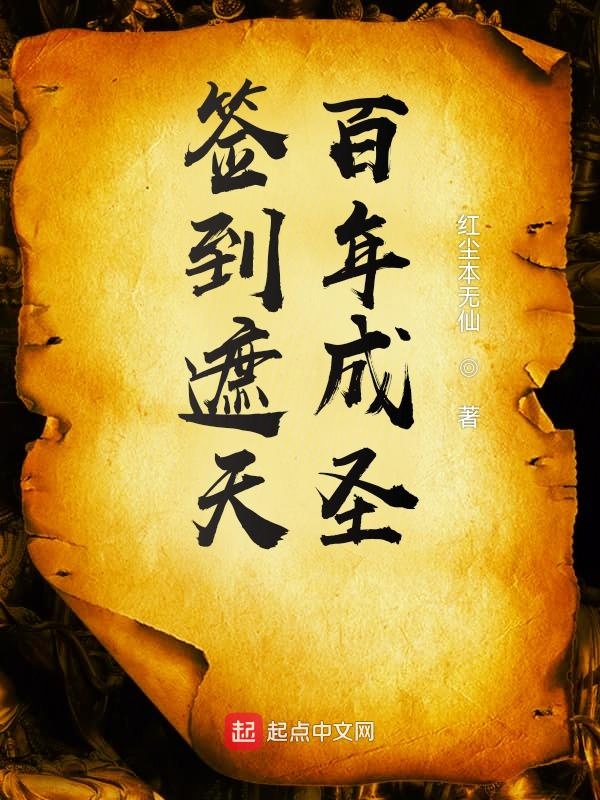 百年成圣
签到遮天
红尘本无仙 ◎ 著
起 起点中文网